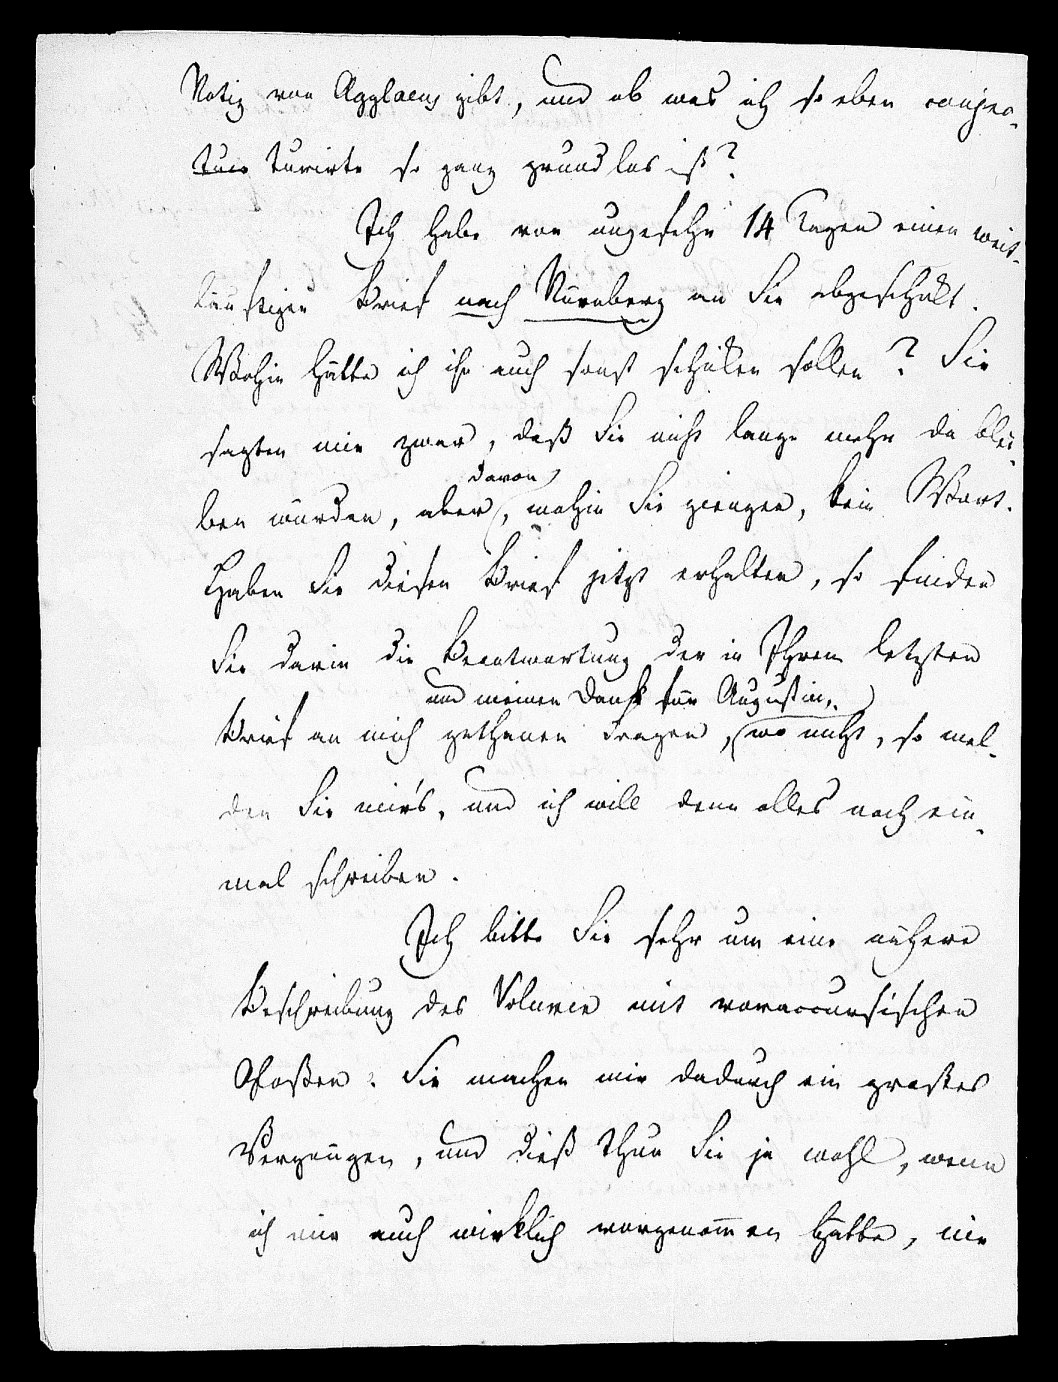 Notiz von Agylaeus gibt, und ob was ich so eben conjec-
ture turirte so ganz grundlos ist?
Ich habe vor ungefehr 14 Tagen einen weit-
läuftigen Brief nach Nürnberg an Sie abgeschikt.
Wohin hätte ich ihn auch sonst schiken sollen? Sie
sagten mir zwar, daß Sie nicht lange mehr da blei-
davon
ben würden, aber, wohin Sie giengen, kein Wort.
Haben Sie diesen Brief jetzt erhalten, so finden
Sie darin die Beantwortung der in Ihrem letzten
und meinen Dank für Augustin,
Brief an mich gethanen Fragen, wo nicht, so mel-
den Sie mir's, und ich will denn alles noch ein-
mal schreiben.
Ich bitte Sie sehr um eine nähere
Beschreibung des Volumen mit voraccursischen
Glossen. Sie machen mir dadurch ein großes
Vergnügen, und dieß thun Sie ja wohl, wenn
ich mir auch wirklich vorgenommen hätte, nie